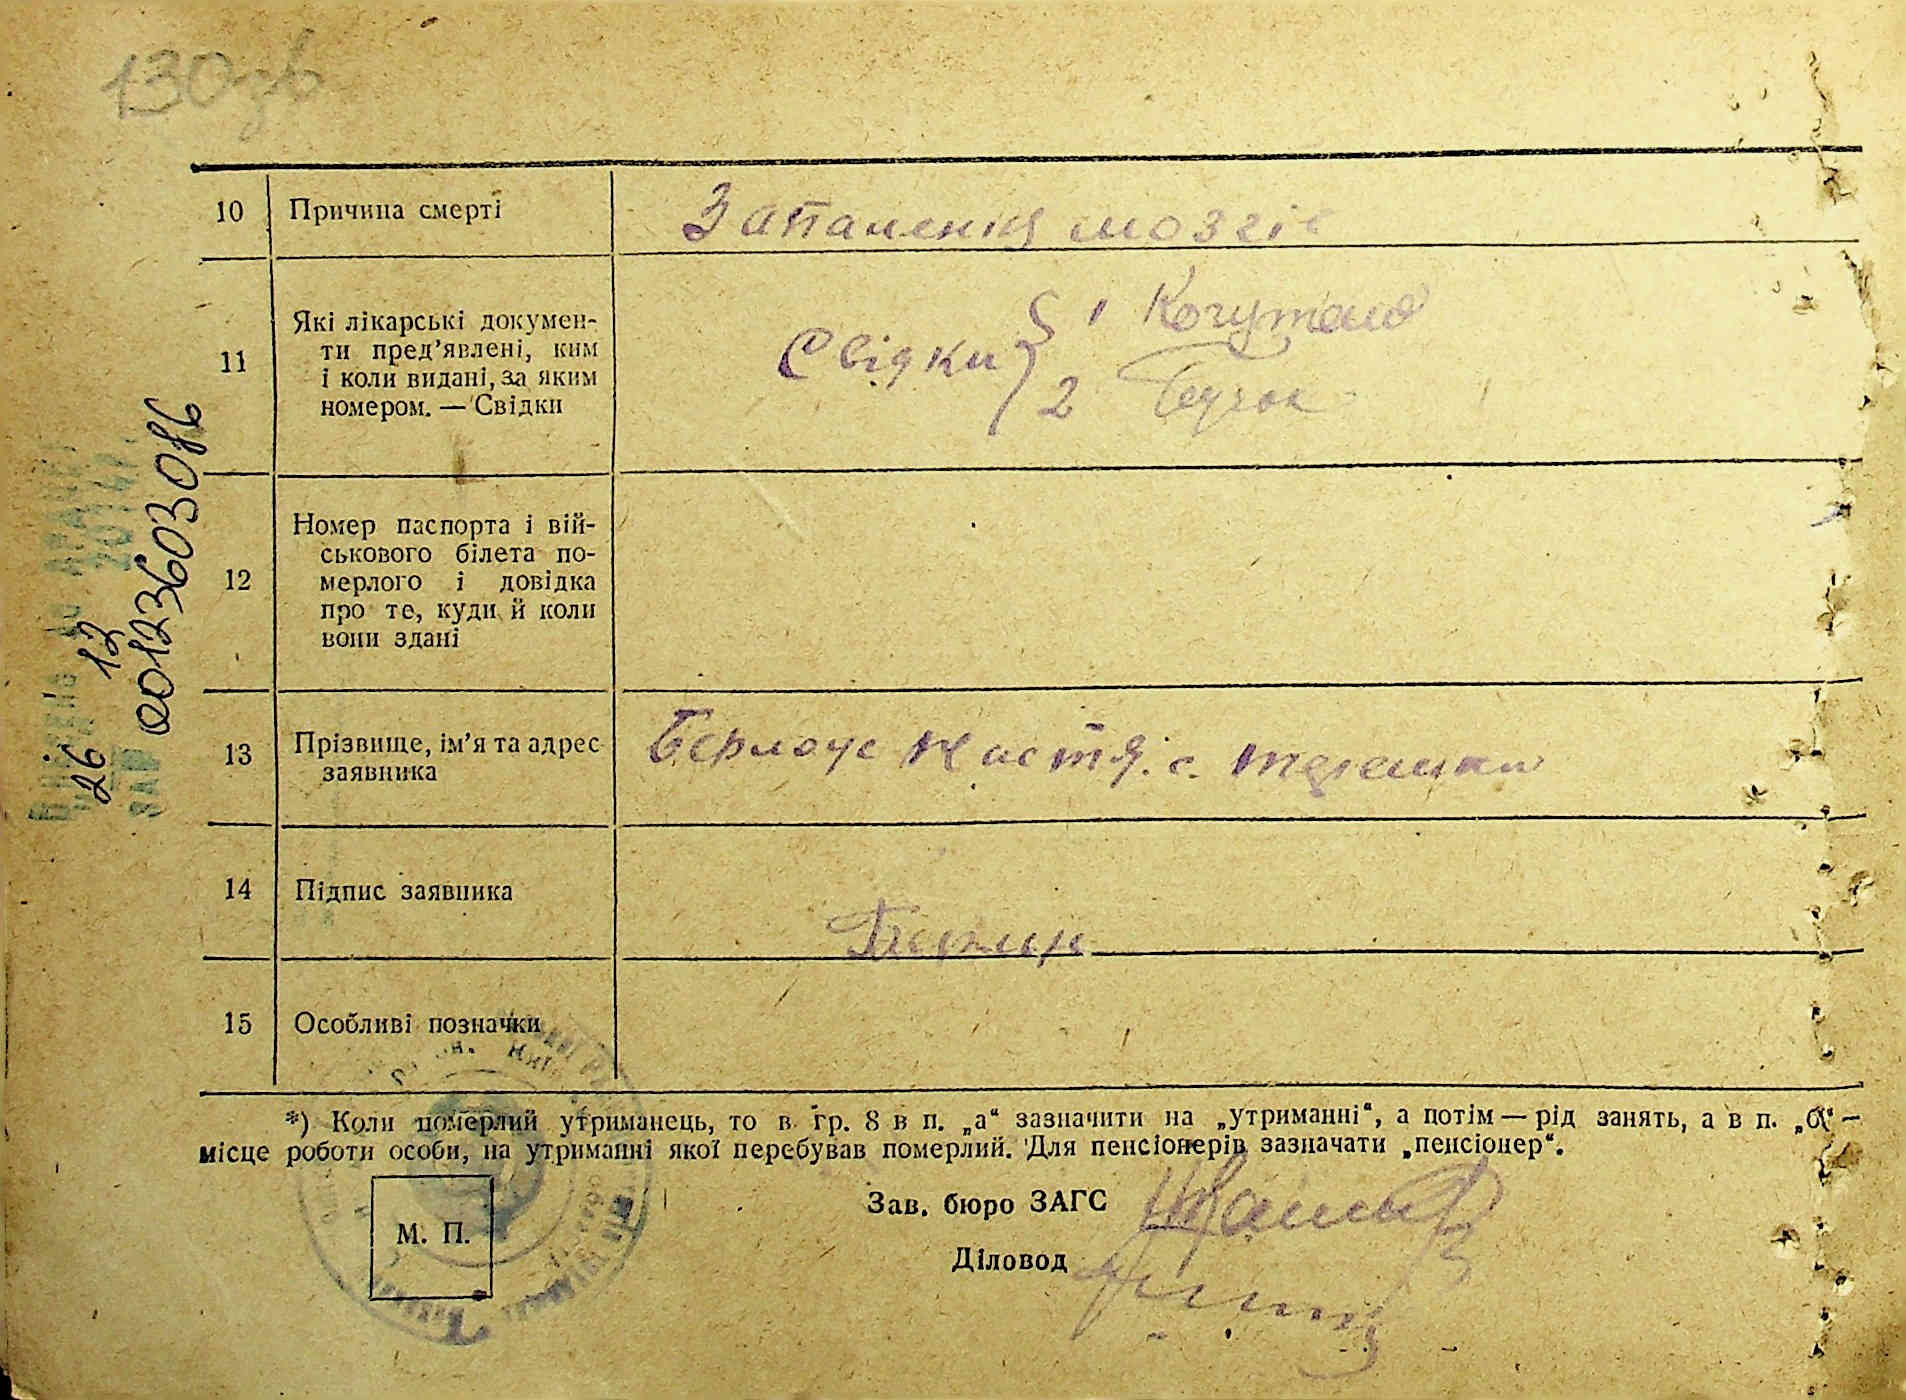 130зв
10 Причина смерті Запалення мозгів
11 Які лікарські докумен-
ти пред’явлені, ким
і коли видані, за яким
номером. — Свідки
Свідки 1
2
12 Номер паспорта і вій-
ськового білета по-
мерлого і довідка
про те, куди й коли
вони здані
13 Прізвище, ім’я та адрес
заявника
Настя. с.
14 Підпис заявника
15 Особливі позначки
*) Коли померлий утриманець, то в гр. 8 в п. „а“ зазначити на „утриманні“, а потім — рід занять, а в п. „б“ —
місце роботи особи, на утриманні якої перебував померлий. Для пенсіонерів зазначати „пенсіонер“.
М. П.
Зав. бюро ЗАГС
Діловод
26 12
00123603086